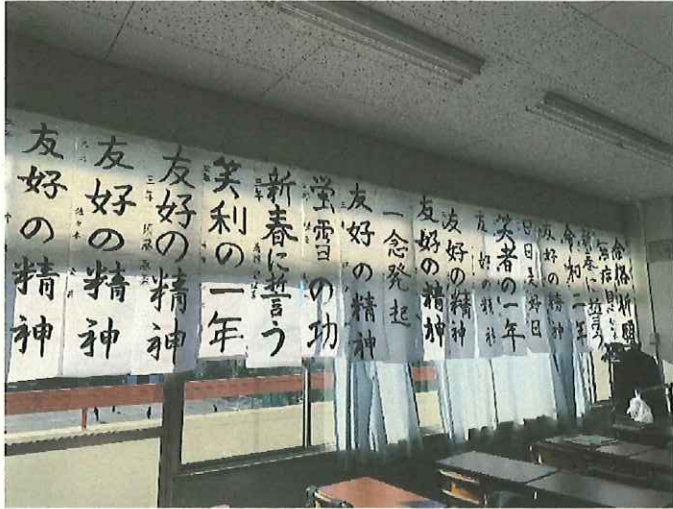 友好の精神
友好の精神
三年
友好の精神
笑利の一年
三年
新春に誓う
蛍雪の功
友好の精神
一念発起
友好の精神
友好の精神
友好の精神
笑者の一年
日日是好日
友好の精神
令和二年
新春に誓う
無病息災
合格祈願